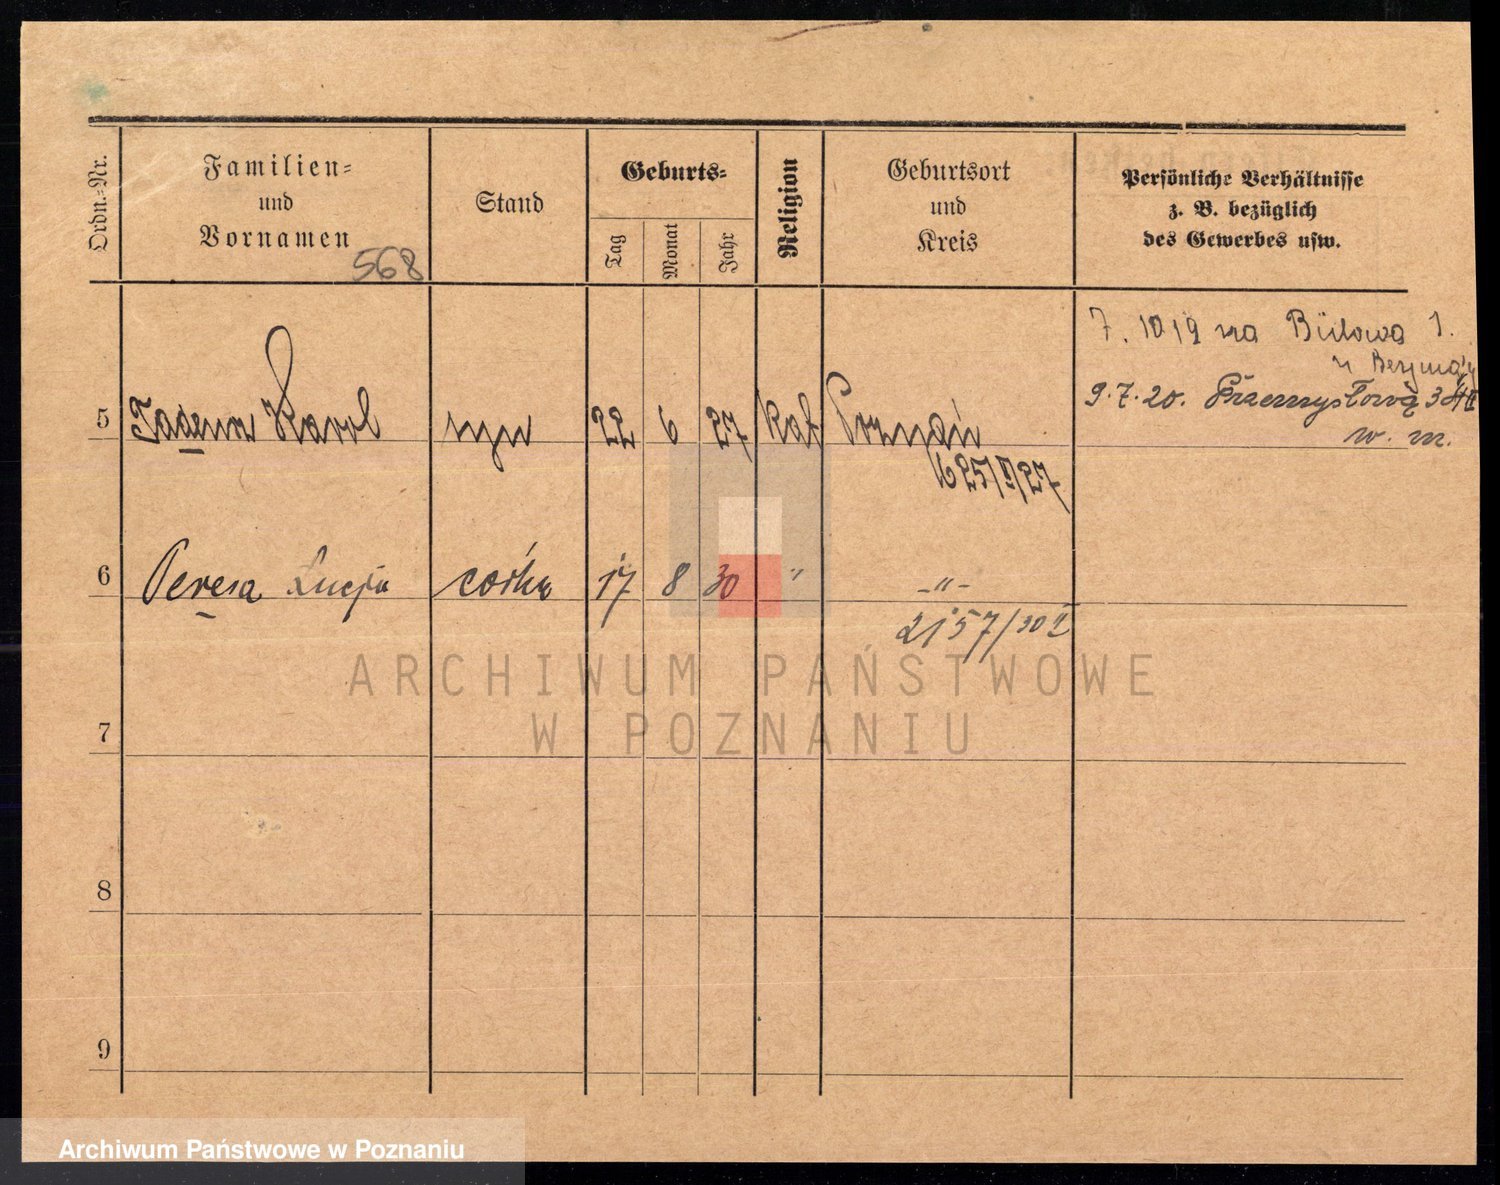 Ordn.-Nr.
Familien-
und
Vornamen
568
Stand
Geburts-
Tag
Monat
Jahr
Religion
Geburtsort
und
Kreis
Persönliche Verhältnisse
z. B. bezüglich
des Gewerbes usw.
7. 10 19 na Bülowa 1.
9.7.20. Przemysłową 3
w. m.
5 Tadeusz Karol syn 22 6 27 kat Poznań
6 Teresa Łucja córka 17 8 30 " -"-
2157/30
7
8
9
ARCHIWUM PAŃSTWOWE
W POZNANIU
Archiwum Państwowe w Poznaniu